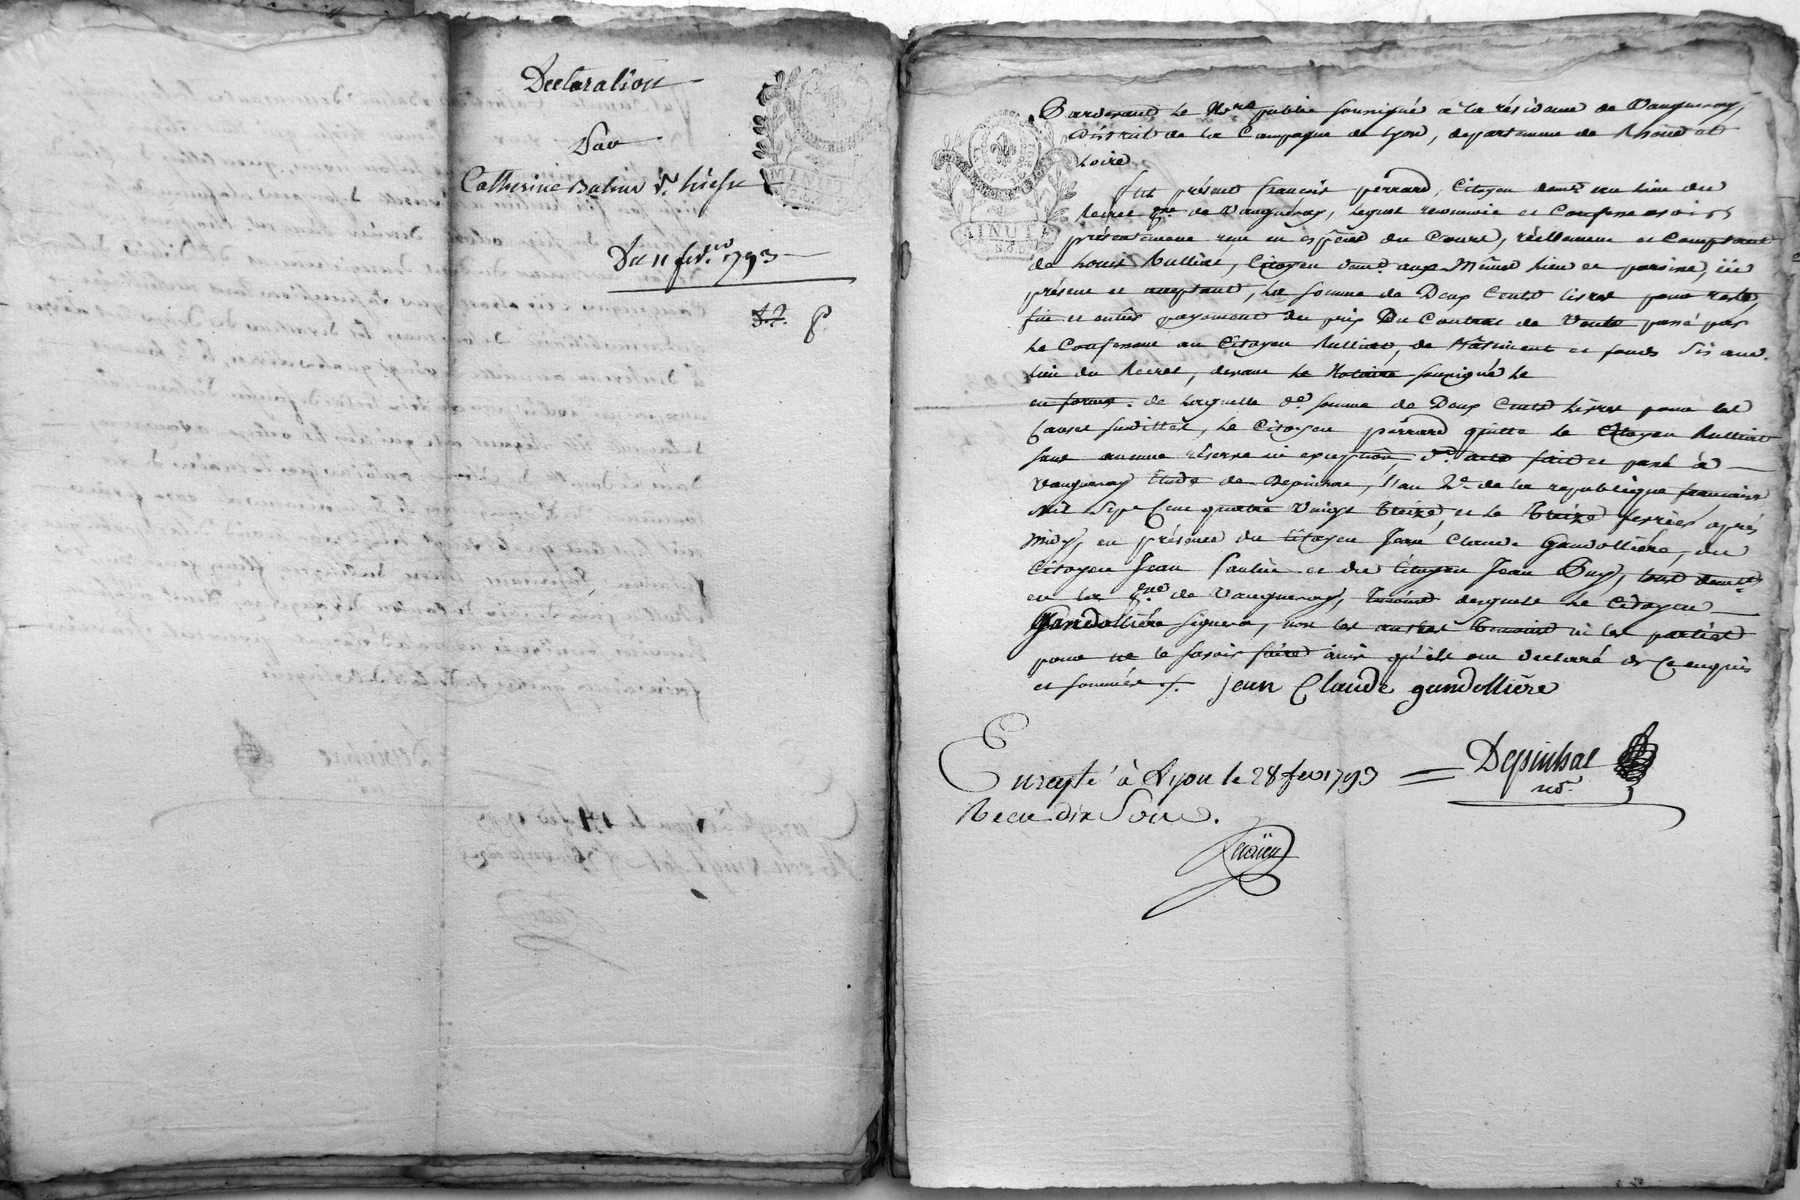 Declaration
Par
Catherine
Du 11 fev.er 1793
MINUTE
Pardevant le N.re public soussigné à la résidence de Vaugneray,
District de la Campagne de Lyon, departement de Rhône et
Loire
Fut présent françois perrard, Citoyen dem.t au lieu du
Recret p.sse de Vaugneray, lequel reconnoit et Confesse avoir
présentement reçu en espèces du Cours, réellement et Comptant
de Louis Rulliat, Citoyen dem.t aux Mêmes lieu et paroisse, ici
présent et acceptant, la somme de Deux Cents livres pour reste,
fin et entier payement du prix Du Contrat de Vente passé par
le Confessant au Citoyen Rulliat, de Bâtiment et fonds Sis au
lieu du Recret, devant le Notaire soussigné le
en forme. de laquelle d.e somme de Deux Cents Livres pour les
Causes susdittes, le Citoyen perrard quitte le Citoyen Rulliat
sans aucune réserve ni exception, D.t acte fait et passé à
Vaugneray Etude de Depinhac, l'an 2.e de la republique francaise
Mil Sept Cent quatre Vingt treize, et le treize fevrier après
midy, en présence du Citoyen Jean Claude Gandollière, du
Citoyen Jean et du Citoyen Jean Puy, tous dem.ts
en la p.sse de Vaugneray, témoins desquels le Citoyen
Gandollière signera, non les autres témoins ni les parties
pour ne le savoir faire ainsi qu'ils ont declaré de Ce enquis
et sommés ./. jean Claude gandollière
MINUTE
Depinhac
no.re
Enregté à Lyon le 28 fev 1793
Recu dix Sous.